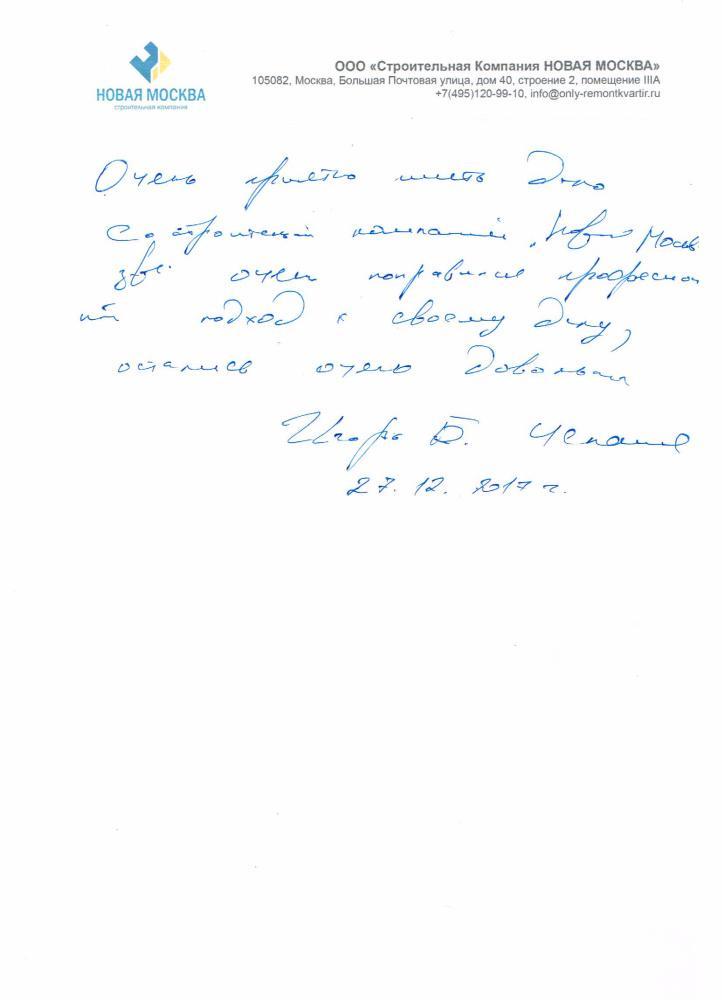 НОВАЯ МОСКВА
строительная компания
ООО «Строительная Компания НОВАЯ МОСКВА»
105082, Москва, Большая Почтовая улица, дом 40, строение 2, помещение IIIА
+7(495)120-99-10, info@only-remontkvartir.ru
Очень приятно иметь дело
со строительной компанией „Новая Москв
очень понравился професион
ный подход к своему делу,
остались очень довольны
Игорь Б.
27.12.2017 г.